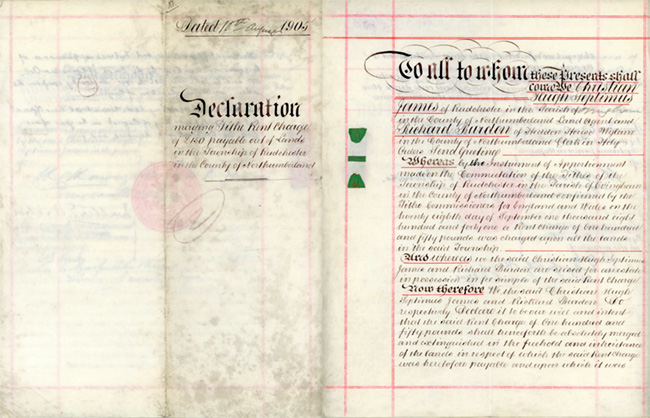 Dated 10th August 1905
Declaration
merging Tithe Rent Charge
of £150 payable out of Lands
in the Township of Rudchester
in the County of Northumberland
To all to whom these Presents shall
come We Christian
Hugh Septimus
James of Rudchester in the Parish of
in the County of Northumberland Land Agent and
Richard Burdon of Heddon House Wylam
in the County of Northumberland Clerk in Holy
Orders Send Greeting
Whereas by the Instrument of Apportionment
made on the Commutation of the Tithes of the
Township of Rudchester in the Parish of Ovingham
in the County of Northumberland confirmed by the
Tithe Commissioners for England and Wales on the
twenty eighth day of September one thousand eight
hundred and forty one a Rent Charge of One hundred
and fifty pounds was charged upon all the Lands
in the said Township.
And whereas we the said Christian Hugh Septimus
James and Richard Burdon are seised for an estate
in possession in fee simple of the said Rent Charge
Now therefore We the said Christian Hugh
Septimus James and Richard Burdon Do
respectively Declare it to be our will and intent
that the said Rent Charge of One hundred and
fifty pounds shall henceforth be absolutely merged
and extinguished in the freehold and inheritance
of the Lands in respect of which the said Rent Charge
was heretofore payable and upon which it was